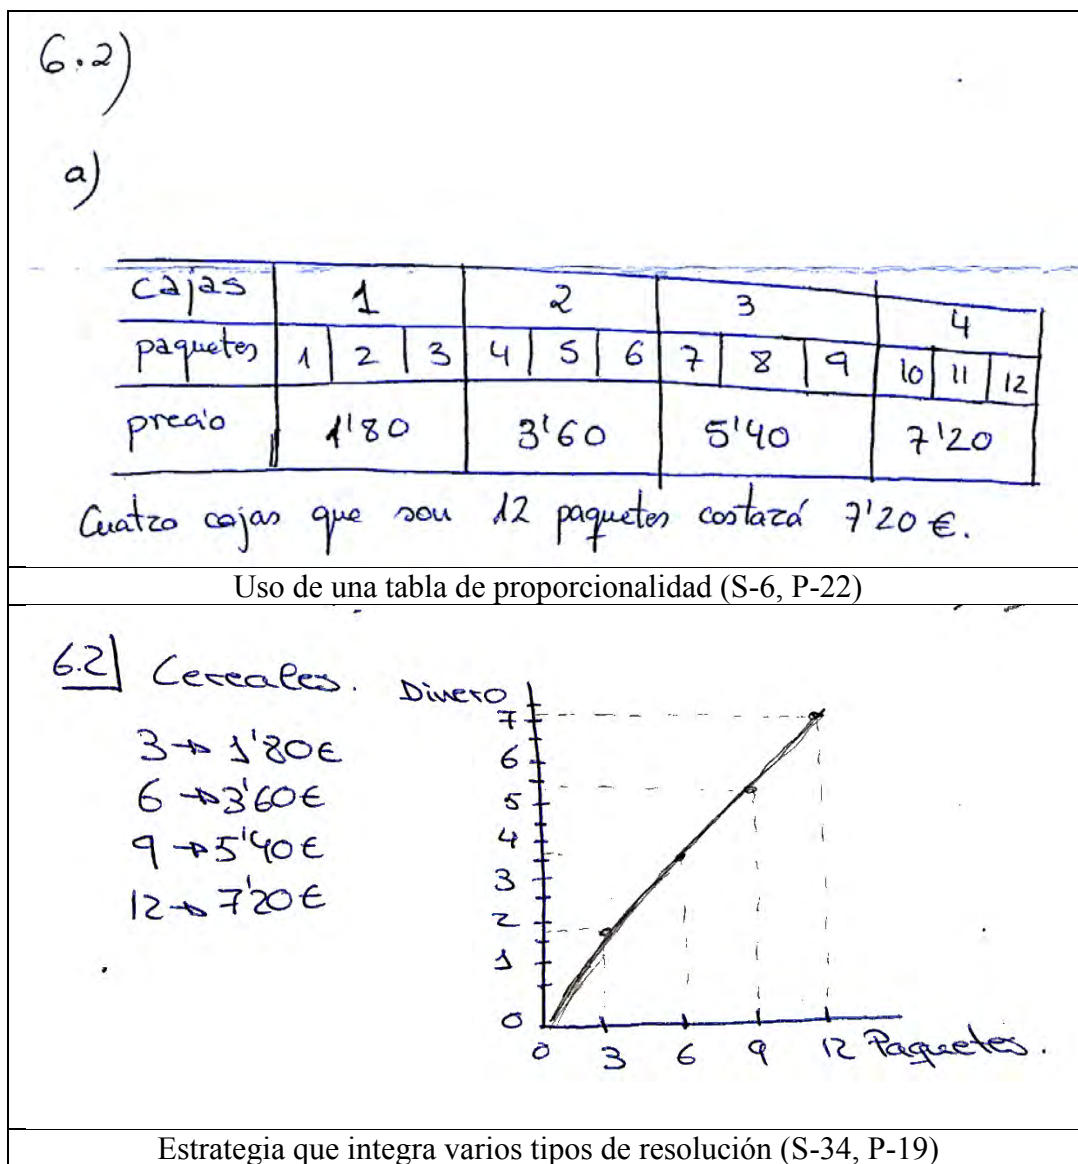 6.2)
a)
cajas 1 2 3 4
paquetes 1 2 3 4 5 6 7 8 9 10 11 12
precio 1'80 3'60 5'40 7'20
Cuatro cajas que son 12 paquetes costará 7'20 €.
Uso de una tabla de proporcionalidad (S-6, P-22)
6.2 Cereales.
3 → 1'80€
6 → 3'60€
9 → 5'40€
12 → 7'20€
Dinero
7
6
5
4
3
2
1
0
0 3 6 9 12 Paquetes.
Estrategia que integra varios tipos de resolución (S-34, P-19)